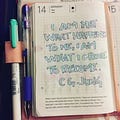 14
I AM NOT
WHAT HAPPENED
TO ME, I AM
WHAT I CHOOSE
TO BECOME.
C.G. Jung